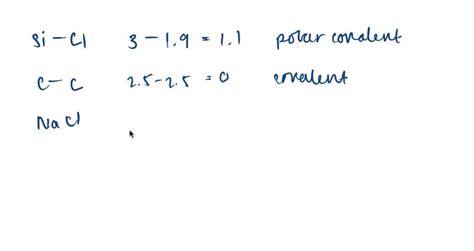 Si - Cl 3 - 1.9 = 1.1 polar covalent
C - C 2.5 - 2.5 = 0 covalent
NaCl